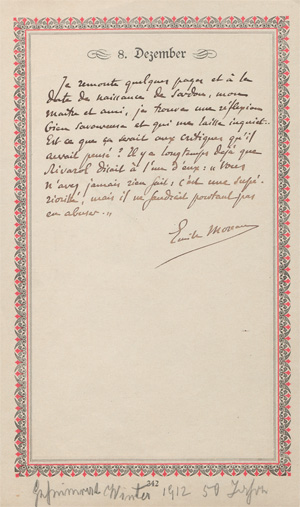 8. Dezember
Je remonte quelques pages et à la
date de naissance de Sardou, mon
maître et ami, je trouve une réflexion
bien savoureuse et qui me laisse inquiet:
Est ce que ça serait aux critiques qu'il
aurait pensé? Il y a longtemps déjà que
Rivarol disait à l'un d'eux: "Vous
n'avez jamais rien fait, c'est une supé-
riorité, mais il ne faudrait pourtant pas
en abuser."
Emile
342
Winter 1912 50 Jahre